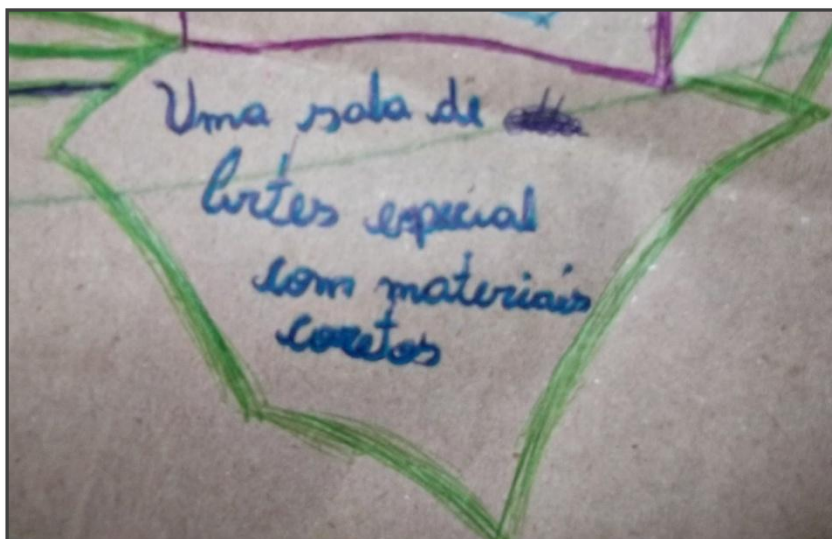 Uma sala de
Artes especial
com materiais
coretos